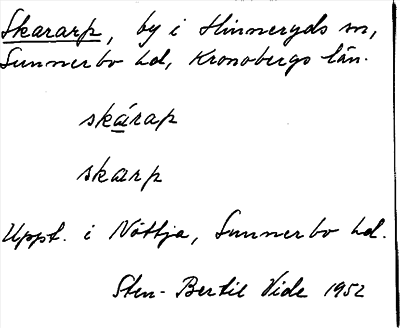 Skararp, by i Hinneryds sn,
Sunnerbo hd, Kronobergs län.
skárap
skarp
Uppt. i Nöttja, Sunnerbo hd.
Sten-Bertil Vide 1952